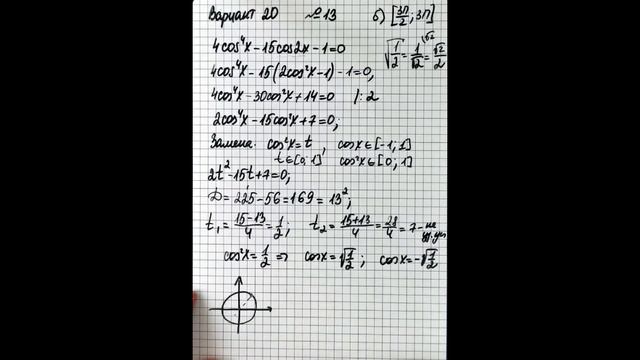 Вариант 20 №13 б) [3π/2; 3π]
4cos⁴x − 15cos2x − 1 = 0
√(1/2) = 1/√2 = √2/2
4cos⁴x − 15(2cos²x − 1) − 1 = 0,
4cos⁴x − 30cos²x + 14 = 0 |:2
2cos⁴x − 15cos²x + 7 = 0;
Замена cos²x = t, cosx ∈ [−1; 1]
t ∈ [0; 1] cos²x ∈ [0; 1]
2t² − 15t + 7 = 0;
D = 225 − 56 = 169 = 13²;
t₁ = (15−13)/4 = 1/2; t₂ = (15+13)/4 = 28/4 = 7 − не
cos²x = 1/2 ⇒ cosx = √(1/2); cosx = −√(1/2)